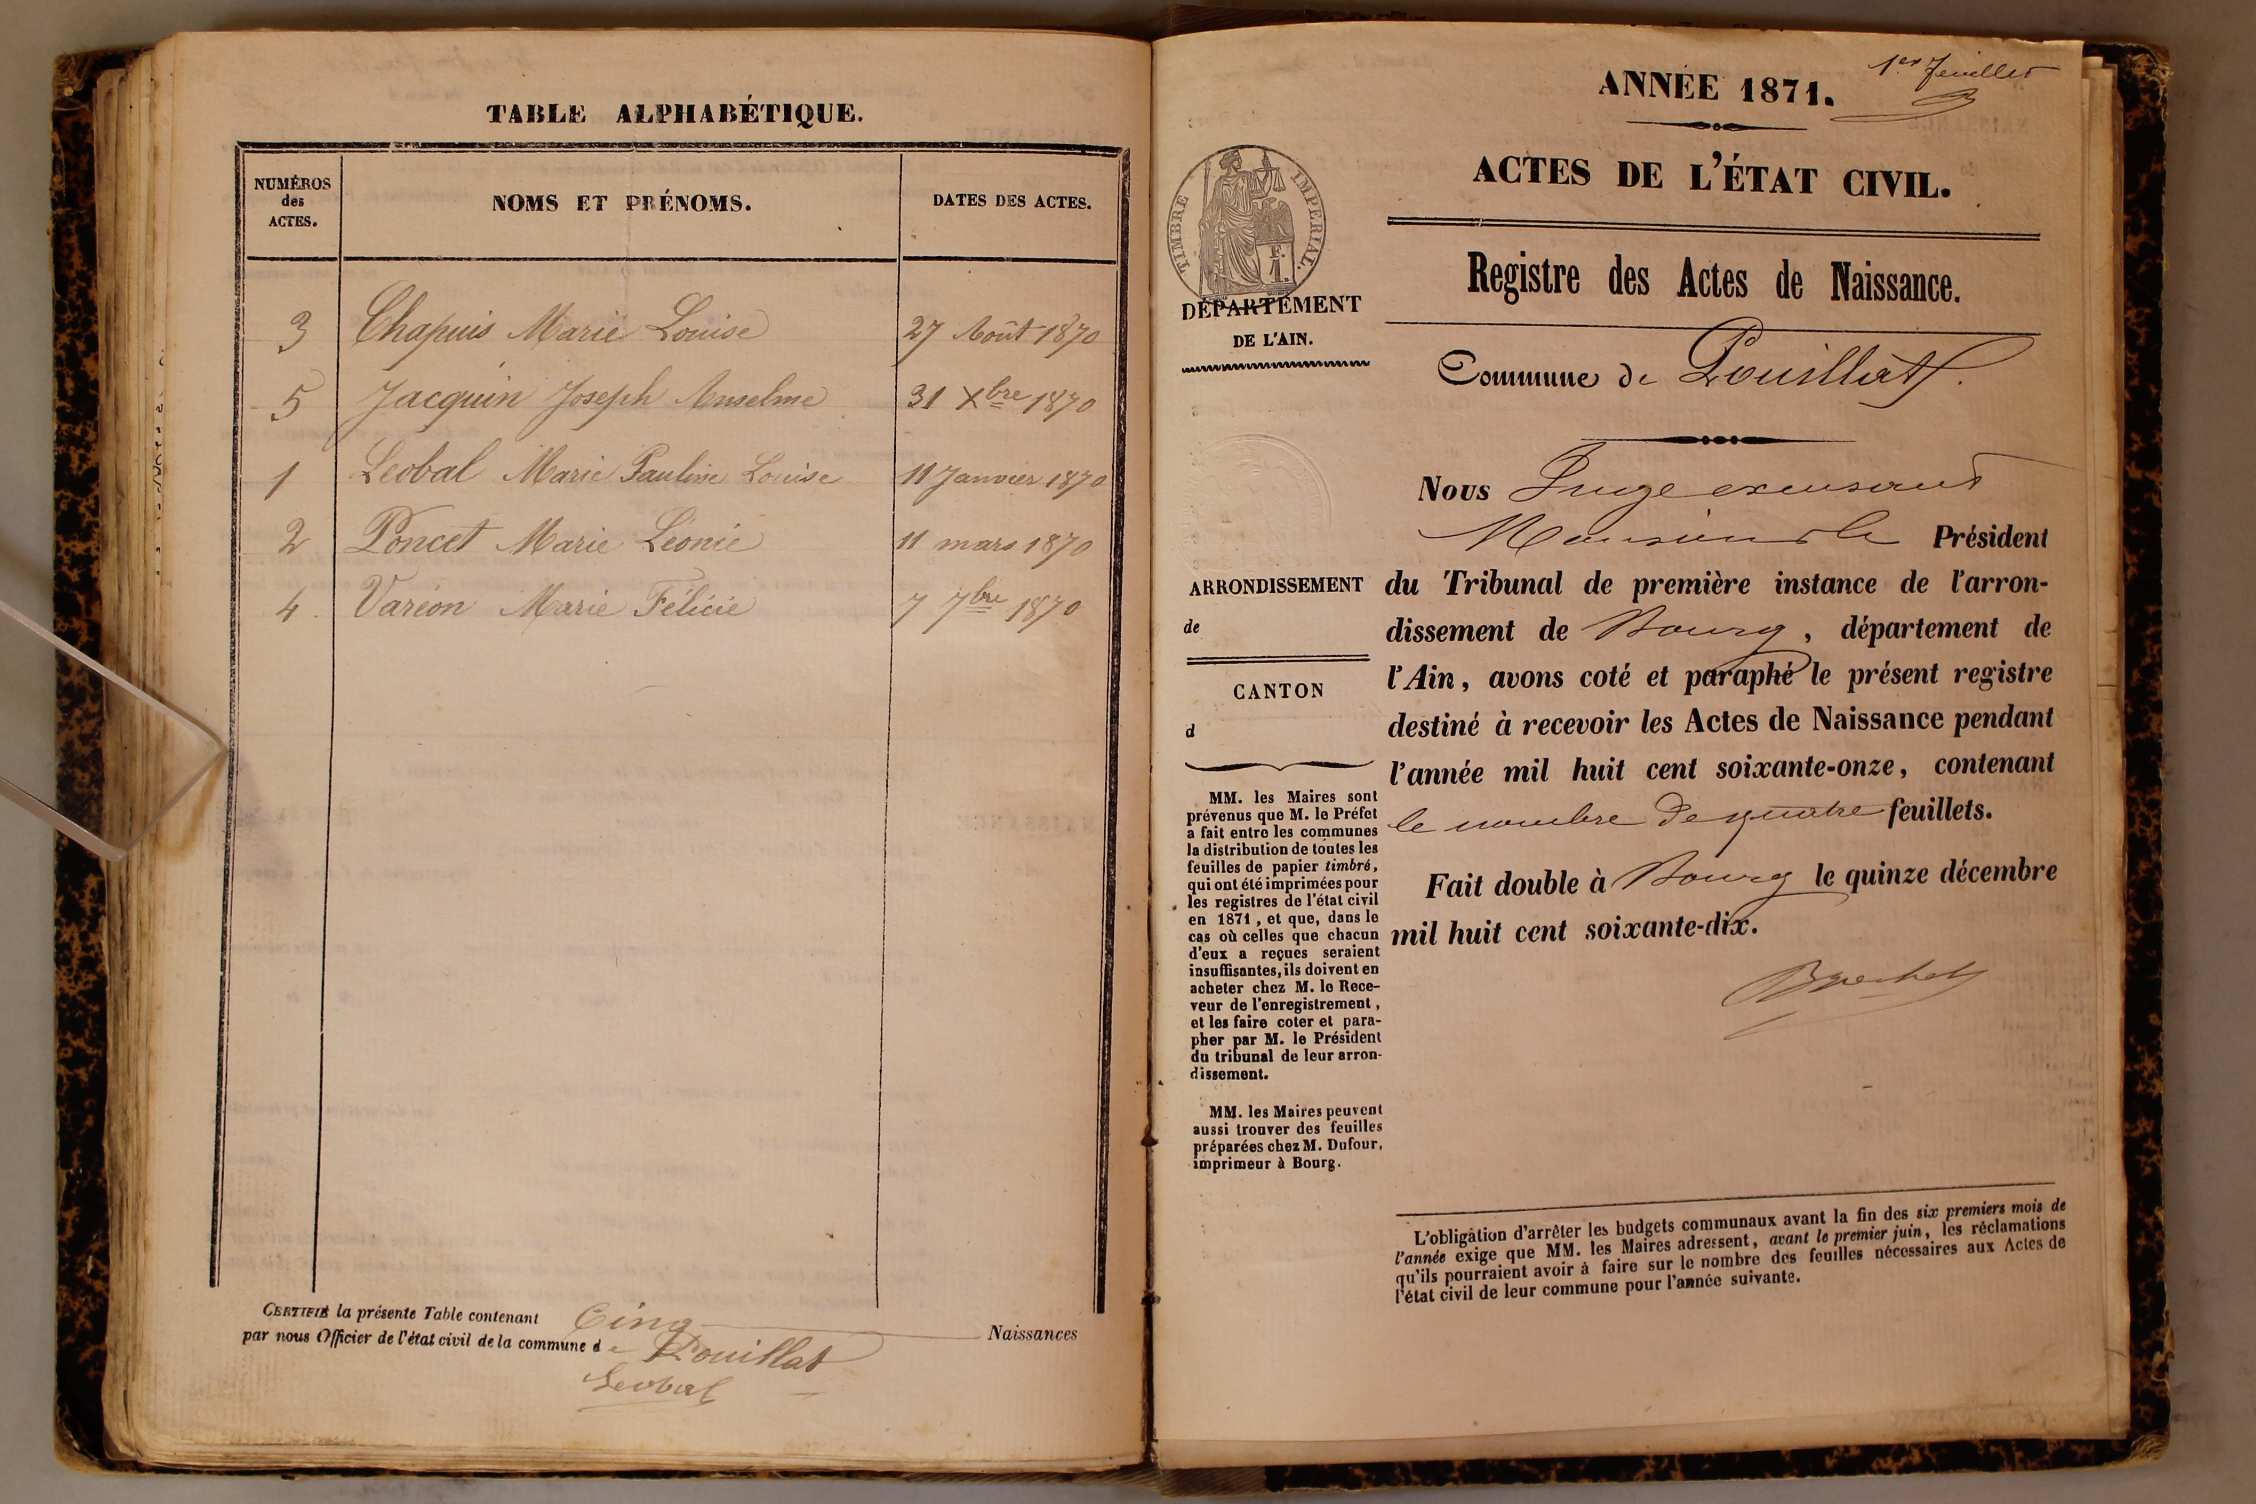 TABLE ALPHABÉTIQUE.
NUMÉROS
des
ACTES.
NOMS ET PRÉNOMS.
DATES DES ACTES.
3 Chapuis Marie Louise 27 Août 1870
5 Jacquin Joseph Anselme 31 Xbre 1870
1 Leobal Marie Pauline Louise 11 Janvier 1870
2 Poncet Marie Léonie 11 mars 1870
4 Varéon Marie Félicie 7 7bre 1870
CERTIFIÉ la présente Table contenant Cinq Naissances
par nous Officier de l'état civil de la commune de Pouillat
Leobal
1er feuillet
ANNÉE 1871.
ACTES DE L'ÉTAT CIVIL.
Registre des Actes de Naissance.
Commune de Pouillat.
TIMBRE IMPERIAL.
F.
1.
DÉPARTEMENT
DE L'AIN.
ARRONDISSEMENT
de
CANTON
d
MM. les Maires sont
prévenus que M. le Préfet
a fait entre les communes
la distribution de toutes les
feuilles de papier timbré,
qui ont été imprimées pour
les registres de l'état civil
en 1871, et que, dans le
cas où celles que chacun
d'eux a reçues seraient
insuffisantes, ils doivent en
acheter chez M. le Rece-
veur de l'enregistrement,
et les faire coter et para-
pher par M. le Président
du tribunal de leur arron-
dissement.
MM. les Maires peuvent
aussi trouver des feuilles
préparées chez M. Dufour,
imprimeur à Bourg.
Nous Juge excusant
Monsieur le Président
du Tribunal de première instance de l'arron-
dissement de Bourg, département de
l'Ain, avons coté et paraphé le présent registre
destiné à recevoir les Actes de Naissance pendant
l'année mil huit cent soixante-onze, contenant
le nombre de quatre feuillets.
Fait double à Bourg le quinze décembre
mil huit cent soixante-dix.
L'obligation d'arrêter les budgets communaux avant la fin des six premiers mois de
l'année exige que MM. les Maires adressent, avant le premier juin, les réclamations
qu'ils pourraient avoir à faire sur le nombre des feuilles nécessaires aux Actes de
l'état civil de leur commune pour l'année suivante.